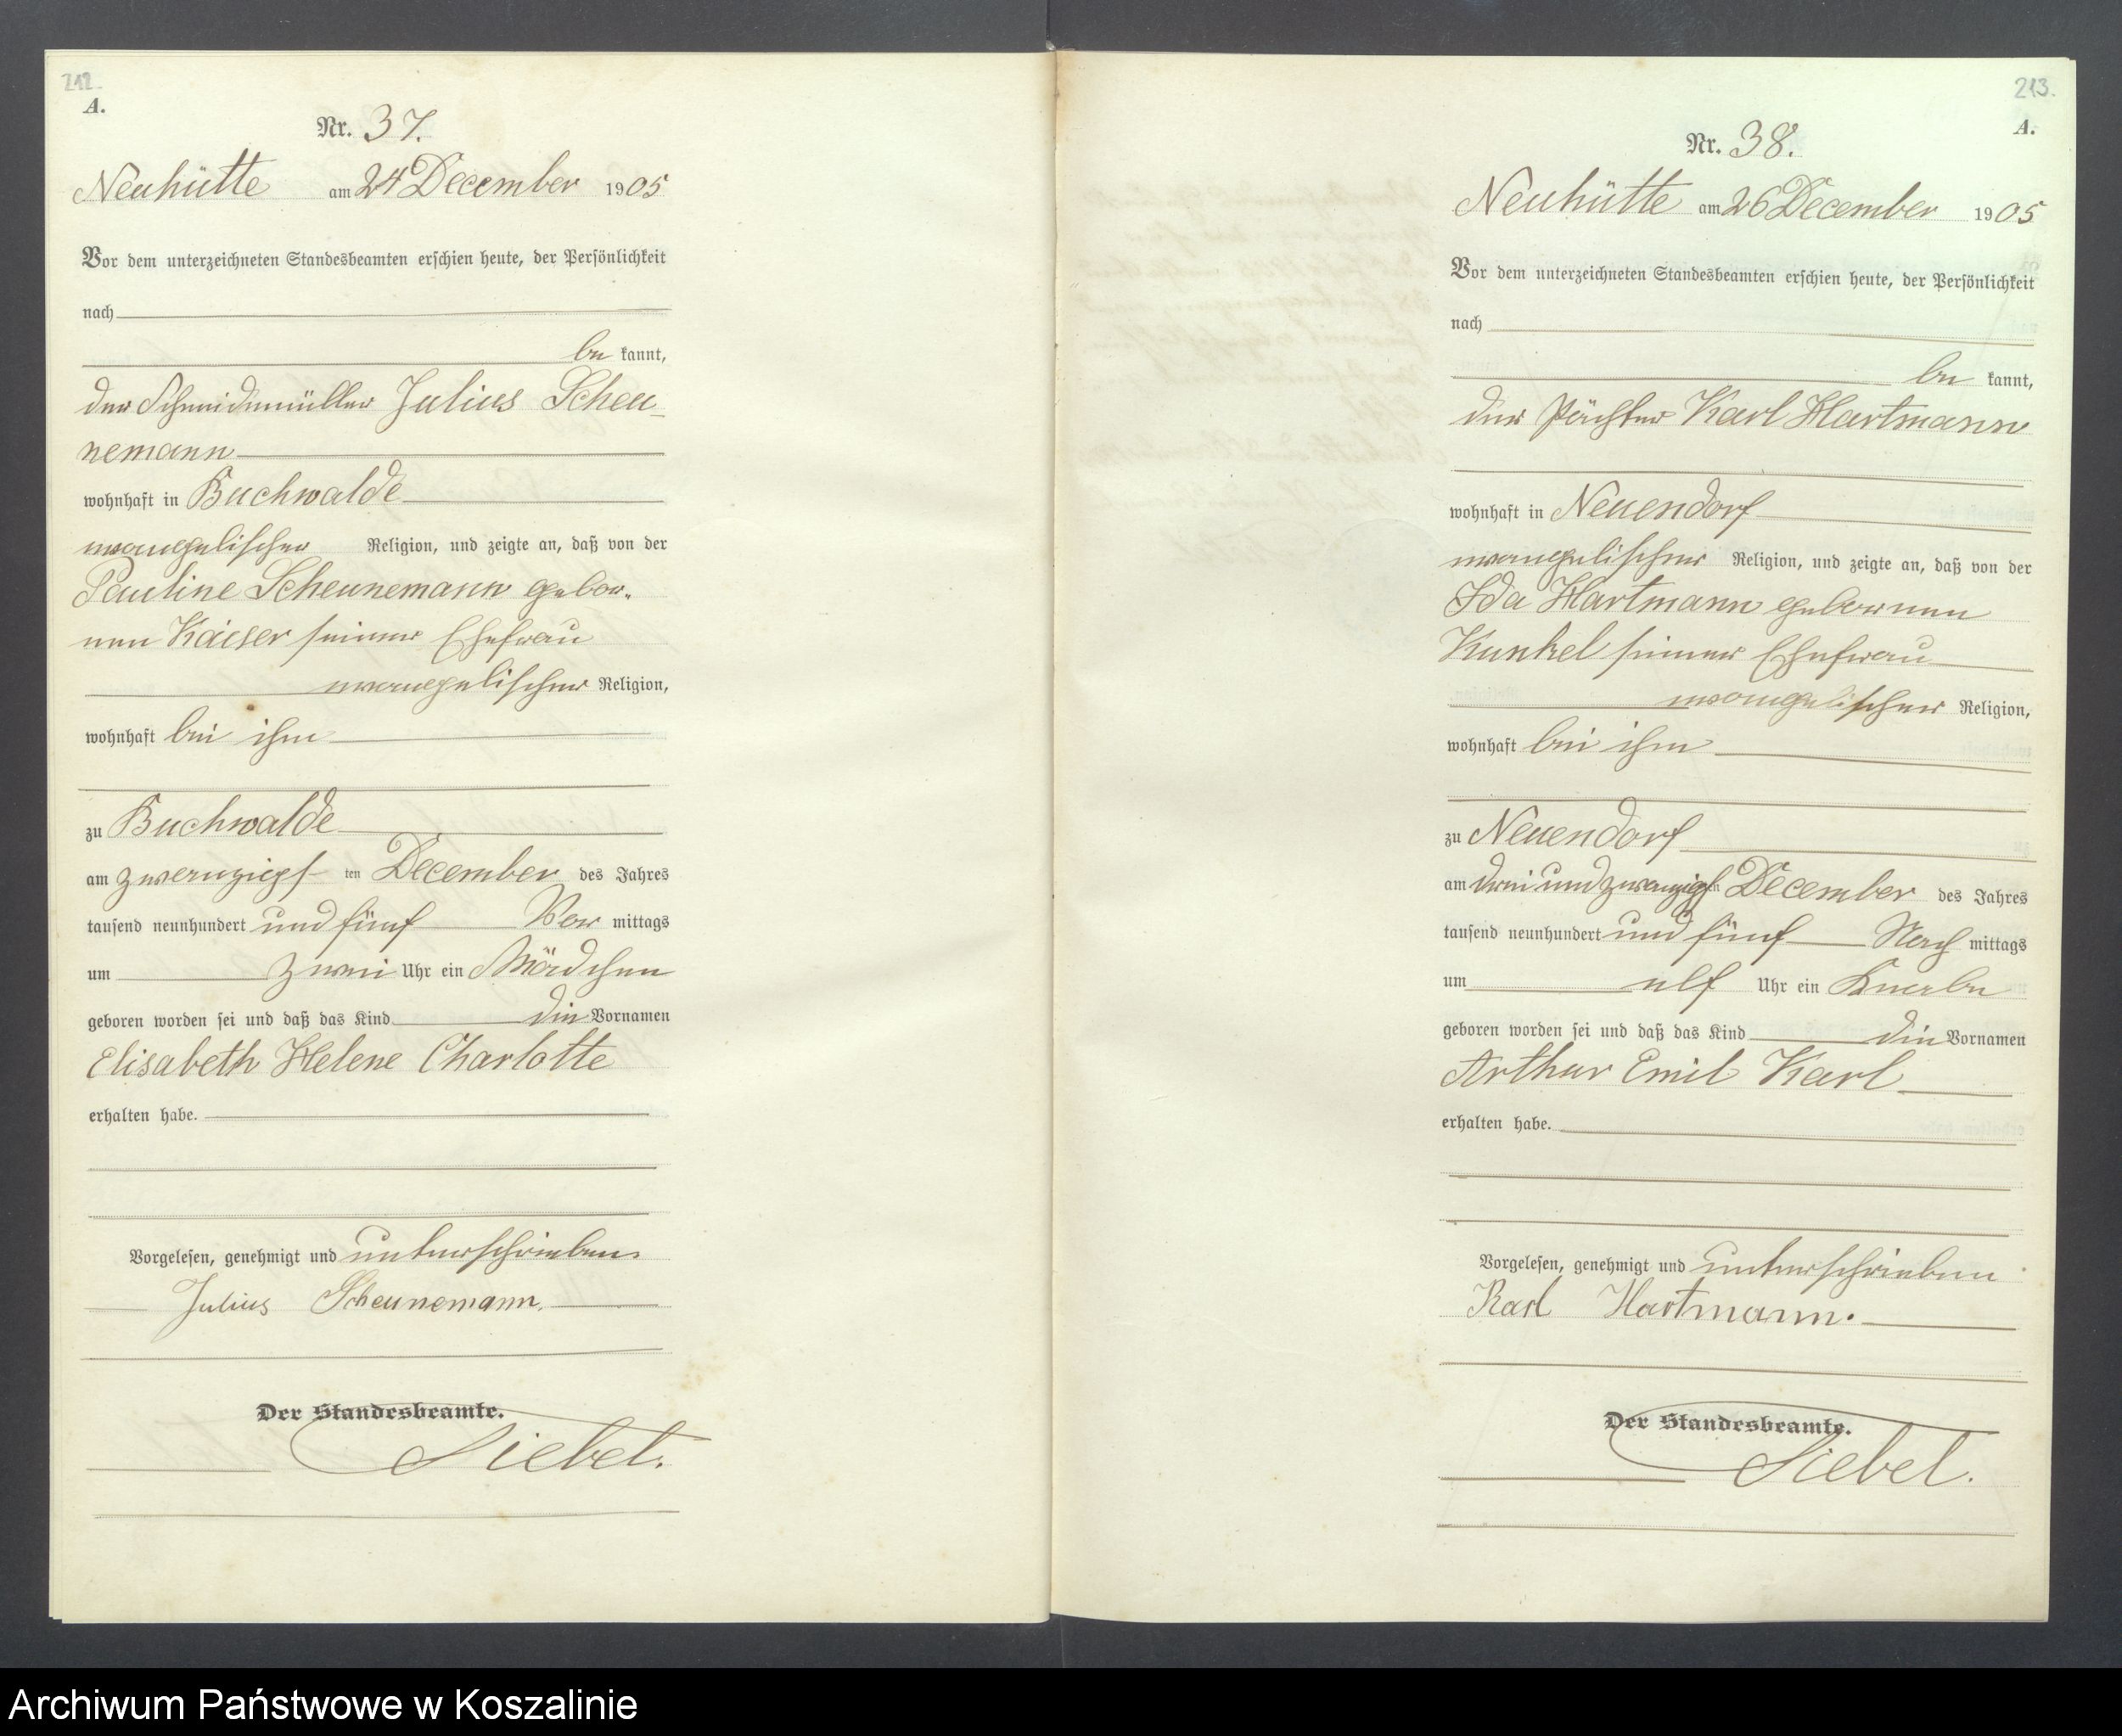 212.
A.
Nr. 37.
Neuhütte am 24 December 1905
Vor dem unterzeichneten Standesbeamten erschien heute, der Persönlichkeit
nach
be kannt,
der Schneidemüller Julius Scheu-
nemann
wohnhaft in Buchwalde
evangelischer Religion, und zeigte an, daß von der
Pauline Scheunemann gebor-
nen Kaiser seiner Ehefrau
evangelischer Religion,
wohnhaft bei ihm
zu Buchwalde
am zwanzigs ten December des Jahres
tausend neunhundert und fünf Vor mittags
um zwei Uhr ein Mädchen
geboren worden sei und daß das Kind die Vornamen
Elisabeth Helene Charlotte
erhalten habe.
Vorgelesen, genehmigt und unterschrieben
Julius Scheunemann.
Der Standesbeamte.
Siebel.
213.
A.
Nr. 38.
Neuhütte am 26 December 1905
Vor dem unterzeichneten Standesbeamten erschien heute, der Persönlichkeit
nach
be kannt,
der Pächter Karl Hartmann
wohnhaft in Neuendorf
evangelischer Religion, und zeigte an, daß von der
Ida Hartmann gebornen
Kunkel seiner Ehefrau
evangelischer Religion,
wohnhaft bei ihm
zu Neuendorf
am dreiundzwanzigsten December des Jahres
tausend neunhundert und fünf Nach mittags
um elf Uhr ein Knabe
geboren worden sei und daß das Kind die Vornamen
Arthur Emil Karl
erhalten habe.
Vorgelesen, genehmigt und unterschrieben
Karl Hartmann.
Der Standesbeamte.
Siebel.
Archiwum Państwowe w Koszalinie